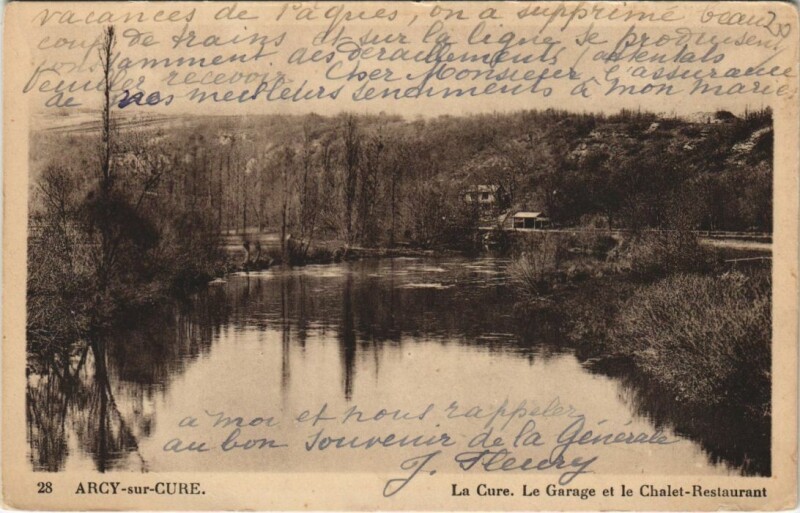 vacances de Pâques, on a supprimé beau
coup de trains et sur la ligne se produisent
constamment des déraillements (attentats
Veuillez recevoir, Cher Monsieur l'assurance
de nos meilleurs sentiments à mon marie
à moi et nous rappeler
au bon souvenir de la Générale
J. Fleury
28 ARCY-sur-CURE. La Cure. Le Garage et le Chalet-Restaurant